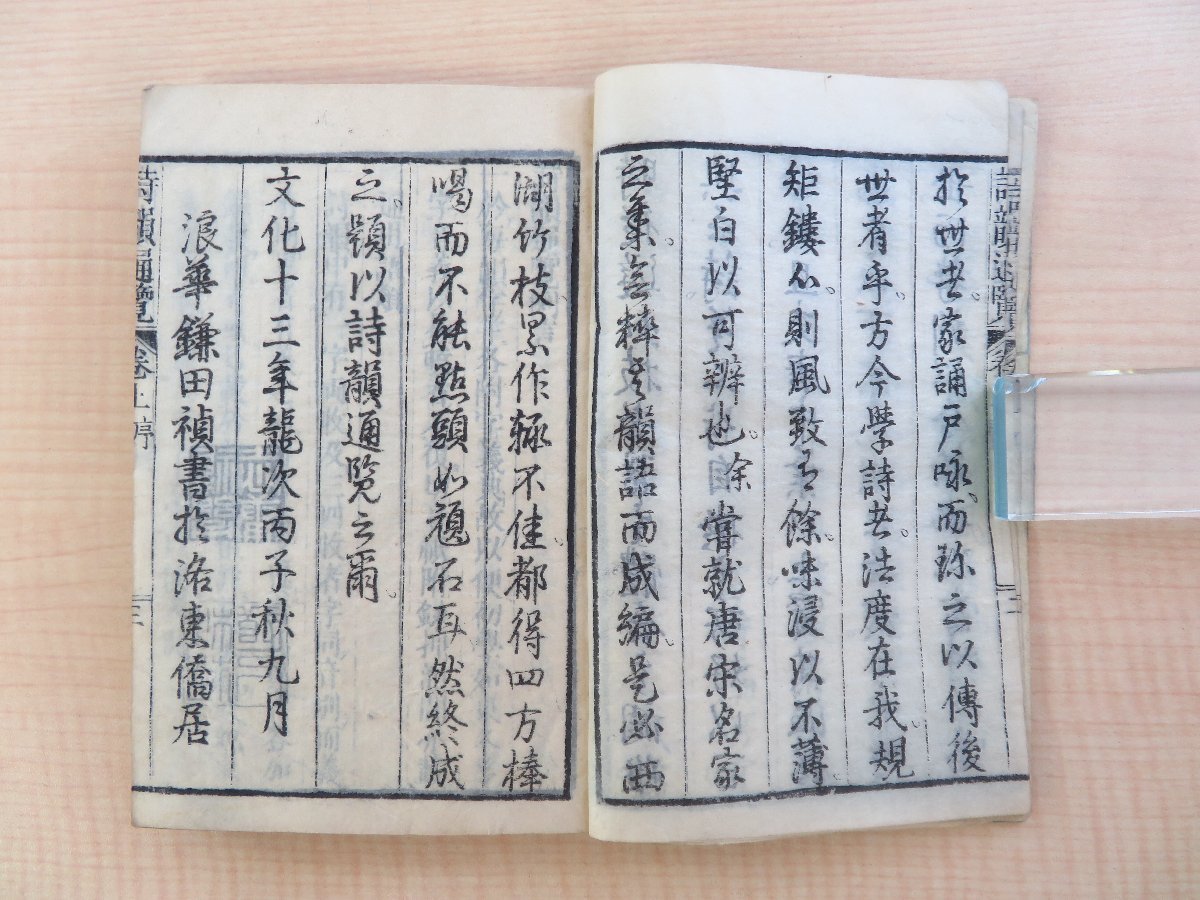 於世者。家誦戶咏。而珎之以傳後
世者乎。方今學詩者。法度在我。規
矩鏤心。則風致有餘。味浸以不薄。
堅白以可辨也。余嘗就唐宋名家
之集。
韻語而成編。是必西
湖竹枝累作
不佳。都得四方棒
喝而不能點頭如頑石耳。然終成
之。題以詩韻通覽之爾。
文化十三年龍次丙子秋九月
浪華鎌田禎書於洛東僑居
詩韻通覽
卷上序
三